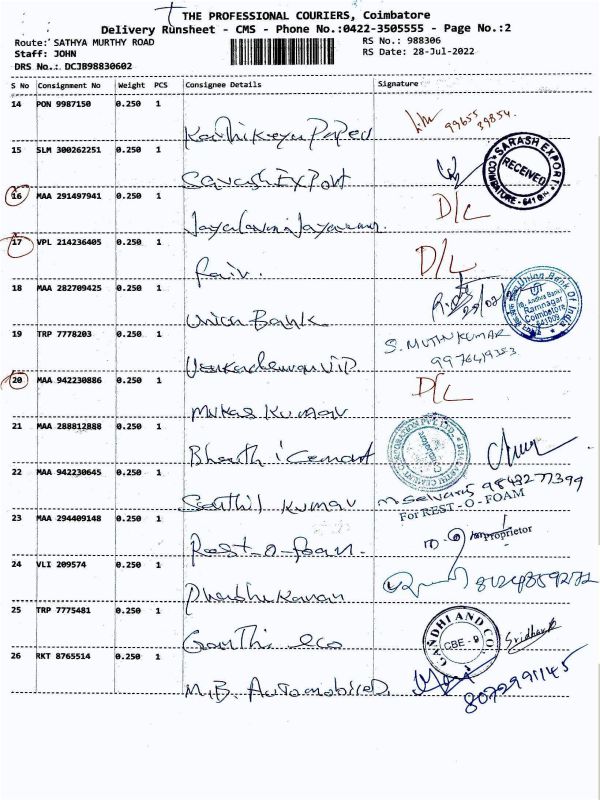 THE PROFESSIONAL COURIERS, Coimbatore
Delivery Runsheet - CMS - Phone No.:0422-3505555 - Page No.:2
Route: SATHYA MURTHY ROAD
RS No.: 988306
Staff: JOHN
RS Date: 28-Jul-2022
DRS No.: DCJB98830602
S No Consignment No Weight PCS Consignee Details Signature
14 PON 9987150 0.250 1
99655 39854
15 SLM 300262251 0.250 1
SARASH EXPORT
RECEIVED
COIMBATORE - 641 014
16 MAA 291497941 0.250 1
D/L
17 VPL 214236405 0.250 1
D/L
18 MAA 282709425 0.250 1
Union Bank
Union Bank Of India
Ramnagar
Coimbatore
19 TRP 7778203 0.250 1
S. MUTHUKUMAR
20 MAA 942230886 0.250 1
Mukas Kumar
D/L
21 MAA 288812888 0.250 1
22 MAA 942230645 0.250 1
Senthil Kumar
9843277399
For REST-O-FOAM
23 MAA 294409148 0.250 1
Rest-o-foam.
Proprietor
24 VLI 209574 0.250 1
8124859272
25 TRP 7775481 0.250 1
GANDHI AND CO
CBE - 9
Sridhar
26 RKT 8765514 0.250 1
M.B. Automobiles
8072991145